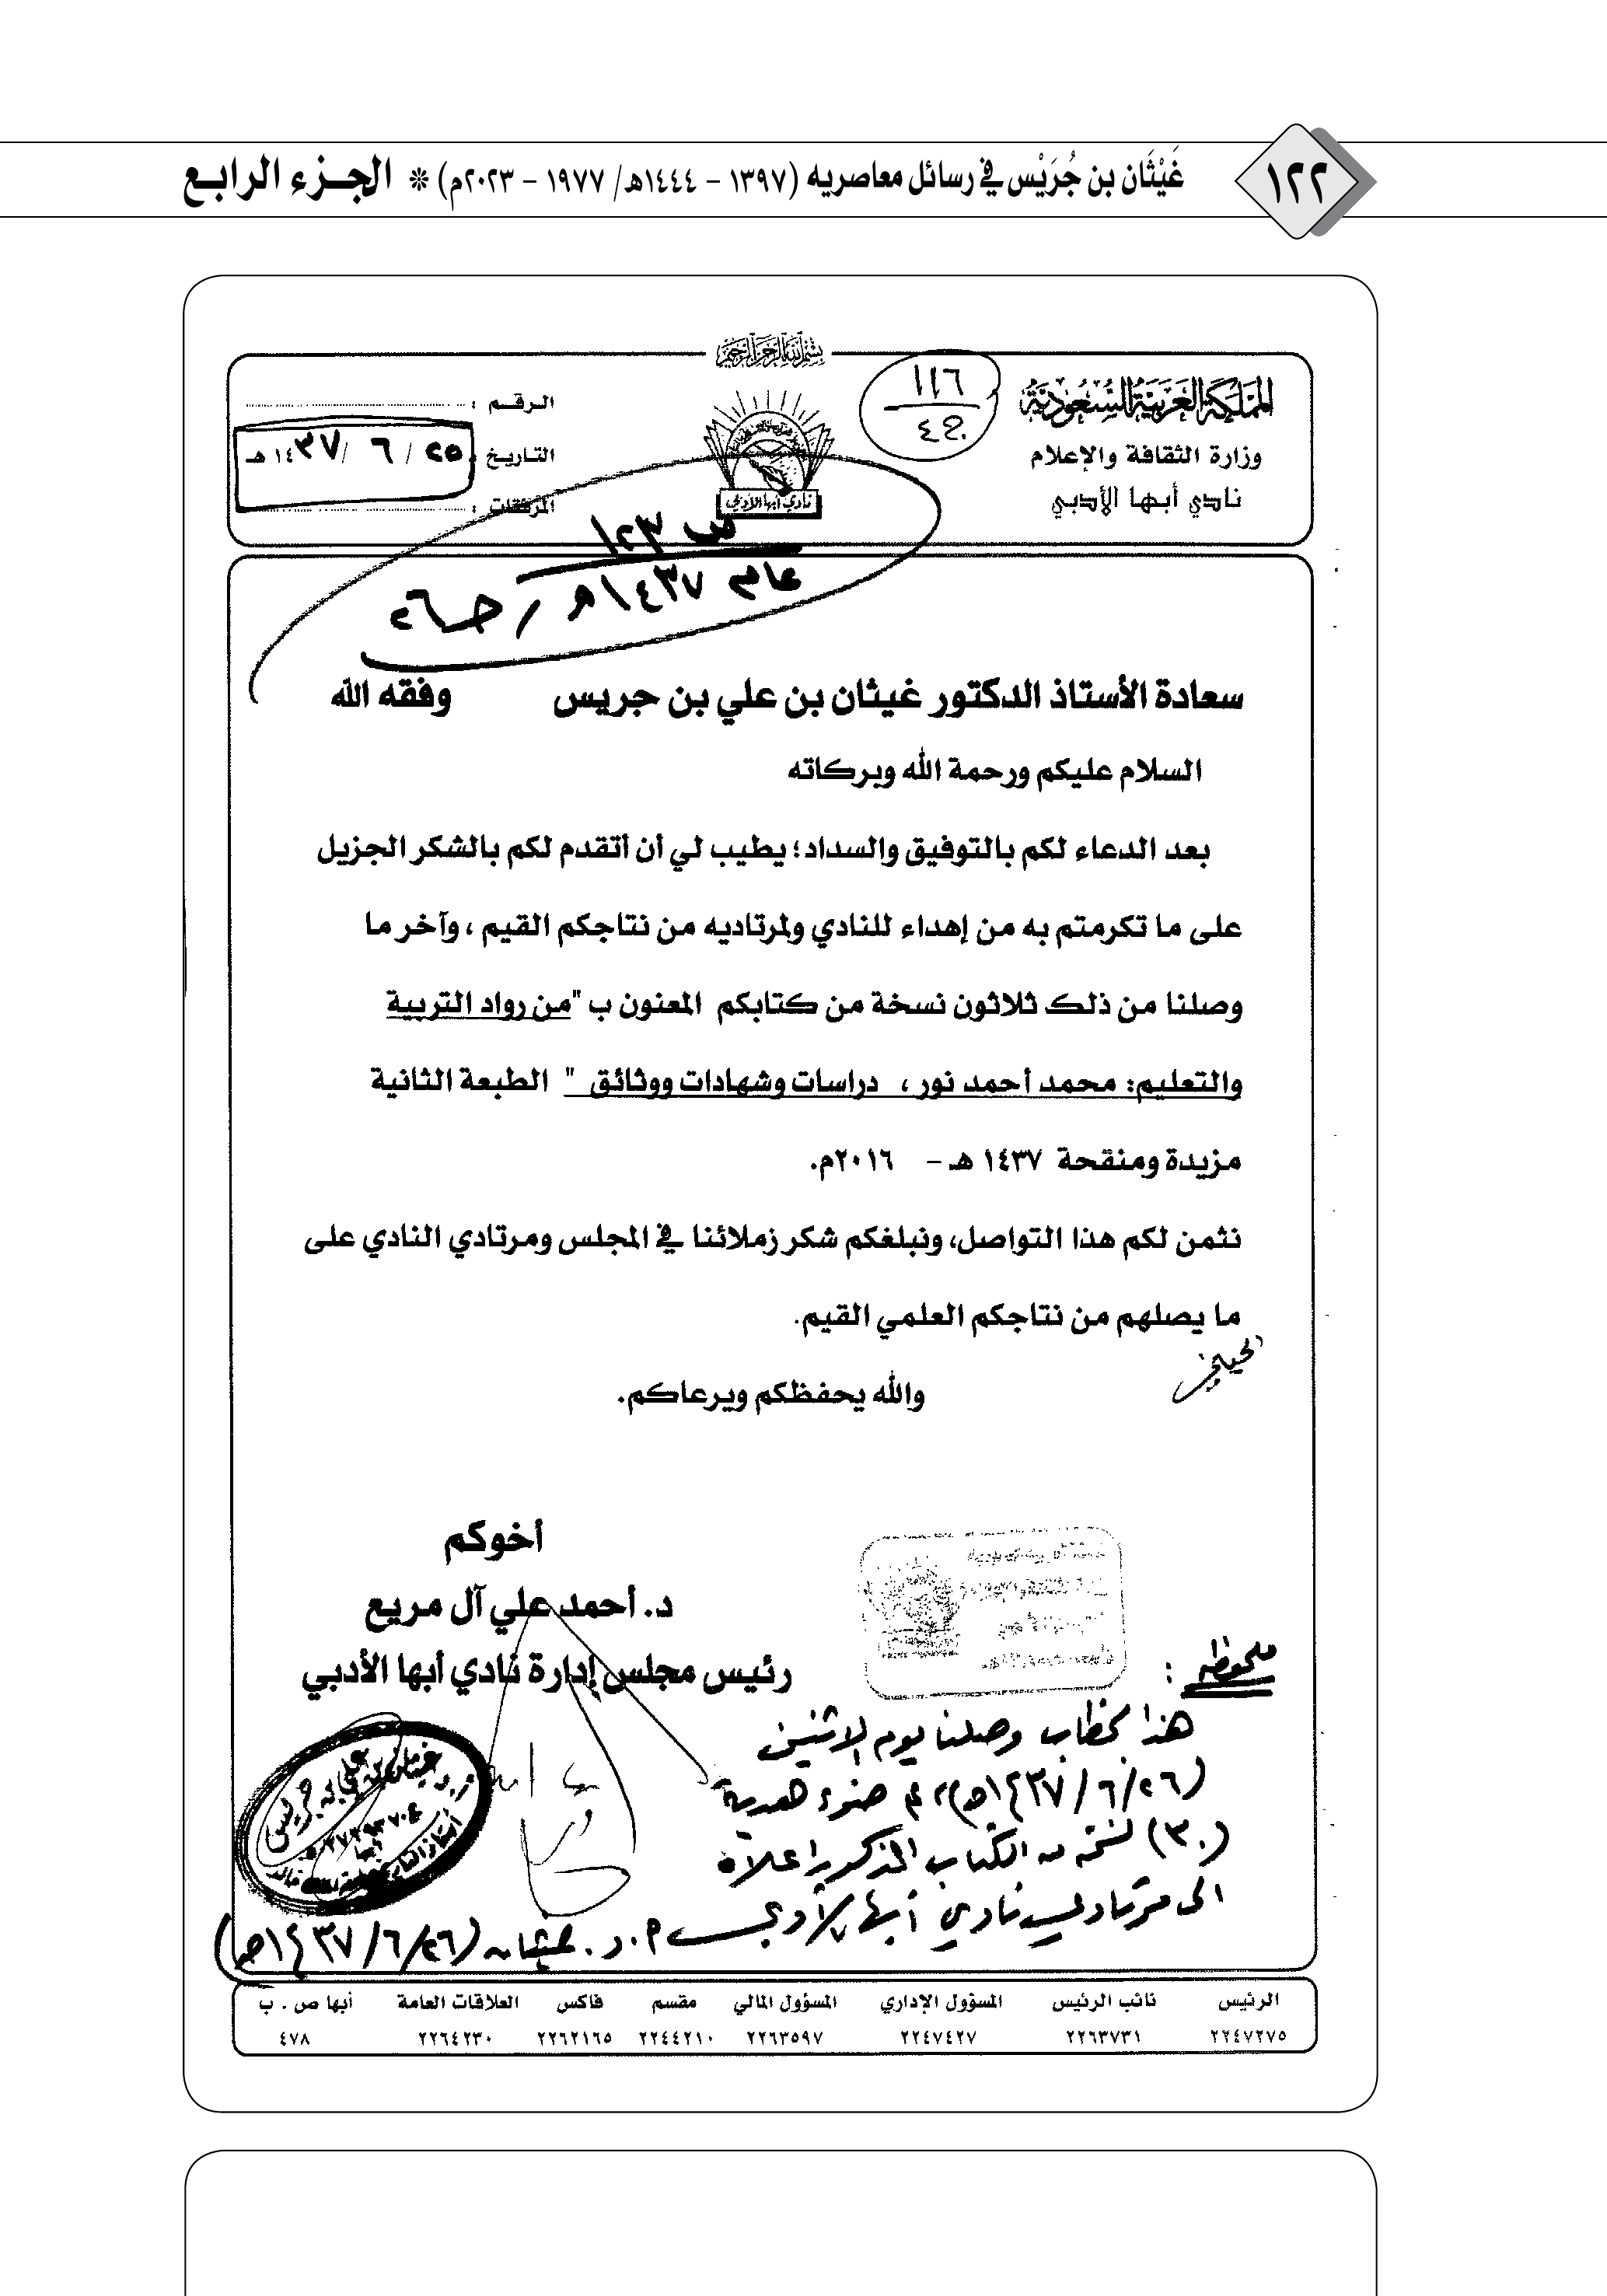 ١٢٢
غَيْثَان بن جُرَيْس في رسائل معاصريه (١٣٩٧ - ١٤٤٤هـ/ ١٩٧٧ - ٢٠٢٣م) ❊ الجزء الرابع
بسم الله الرحمن الرحيم
المملكة العربية السعودية
وزارة الثقافة والإعلام
نادي أبها الأدبي
١١٦
نادي أبها الأدبي
الرقم :
التاريخ : ٢٥ / ٦ / ١٤٣٧ هـ
المرفقات :
ص ١٢٣
عام ١٤٣٧هـ / جـ ٢٦
سعادة الأستاذ الدكتور غيثان بن علي بن جريس وفقه الله
السلام عليكم ورحمة الله وبركاته
بعد الدعاء لكم بالتوفيق والسداد؛ يطيب لي أن أتقدم لكم بالشكر الجزيل
على ما تكرمتم به من إهداء للنادي ولمرتاديه من نتاجكم القيم ، وآخر ما
وصلنا من ذلك ثلاثون نسخة من كتابكم المعنون ب "من رواد التربية
والتعليم: محمد أحمد نور ، دراسات وشهادات ووثائق " الطبعة الثانية
مزيدة ومنقحة ١٤٣٧ هـ - ٢٠١٦م.
نثمن لكم هذا التواصل، ونبلغكم شكر زملائنا في المجلس ومرتادي النادي على
ما يصلهم من نتاجكم العلمي القيم.
والله يحفظكم ويرعاكم.
أخوكم
د. أحمد علي آل مريع
رئيس مجلس إدارة نادي أبها الأدبي
ملحوظة :
هذا خطاب وصلنا يوم الاثنين
(٢٦/٦/١٤٣٧هـ) م ضوء هدية
(٣٠) نسخة من الكتاب المذكور اعلاه
الى مرتادي نادي أبها الأدبي
م.د. غيثان (٢٦/٦/١٤٣٧هـ)
الرئيس نائب الرئيس المسؤول الإداري المسؤول المالي مقسم فاكس العلاقات العامة أبها ص . ب
٢٢٤٧٢٧٥ ٢٢٦٣٧٣١ ٢٢٤٧٤٢٧ ٢٢٦٣٥٩٧ ٢٢٤٤٢١٠ ٢٢٦٢١٦٥ ٢٢٦٤٢٣٠ ٤٧٨